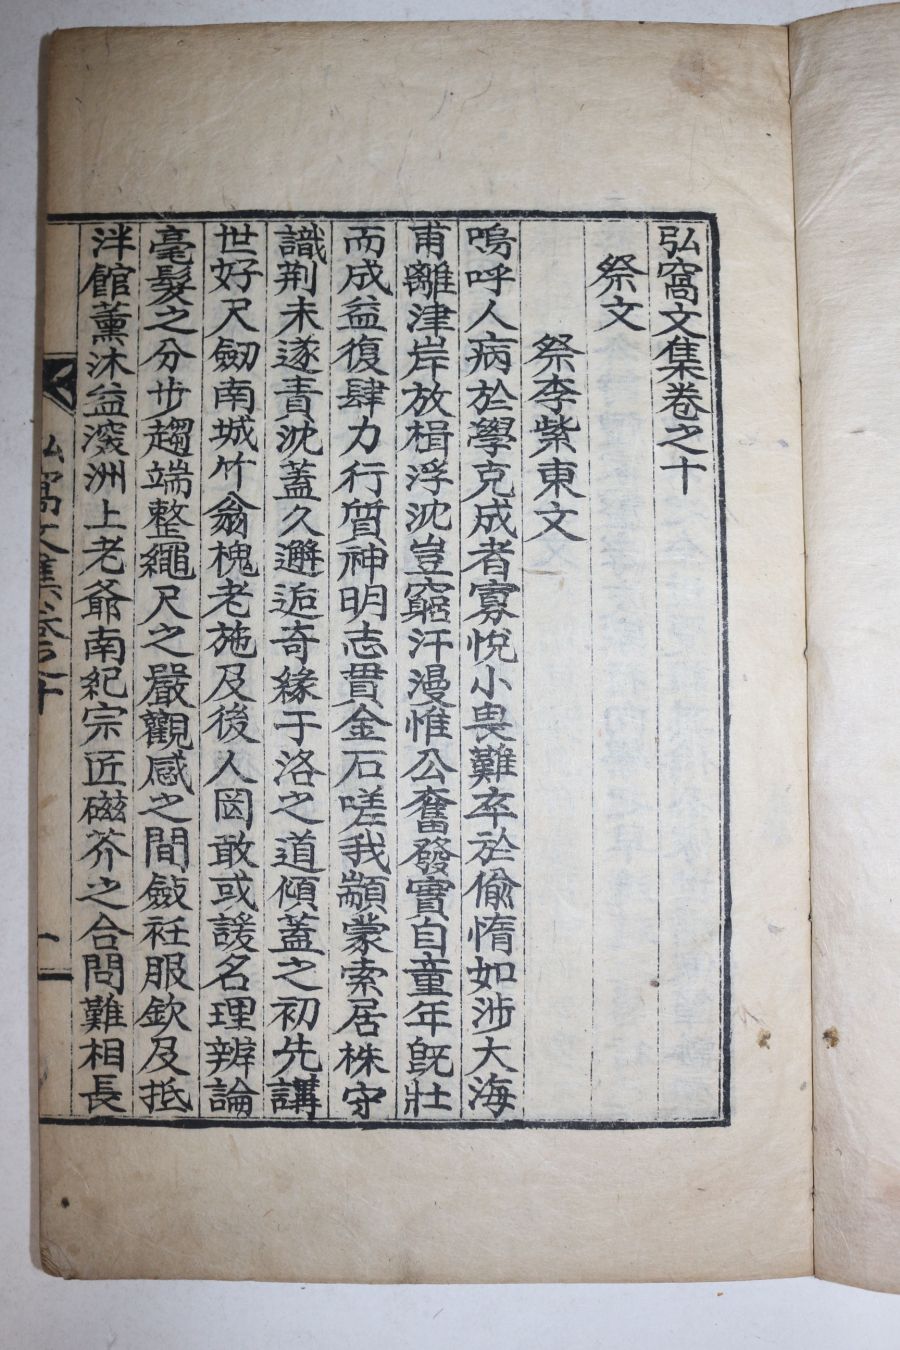 弘窩文集卷之十
祭文
祭李紫東文
嗚呼人病於學克成者寡悅小畏難卒於偸惰如涉大海
甫離津岸放楫浮沈豈窮汗漫惟公奮發實自童年旣壯
而成益復肆力行質神明志貫金石嗟我顓蒙索居株守
識荆未遂責沈蓋久邂逅奇緣于洛之道傾蓋之初先講
世好尺劒南城竹翁槐老施及後人罔敢或諼名理辨論
毫髮之分步趨端整繩尺之嚴觀感之間斂衽服欽及抵
泮館薰沐益深洲上老爺南紀宗匠磁芥之合問難相長
弘窩文集卷之十
一